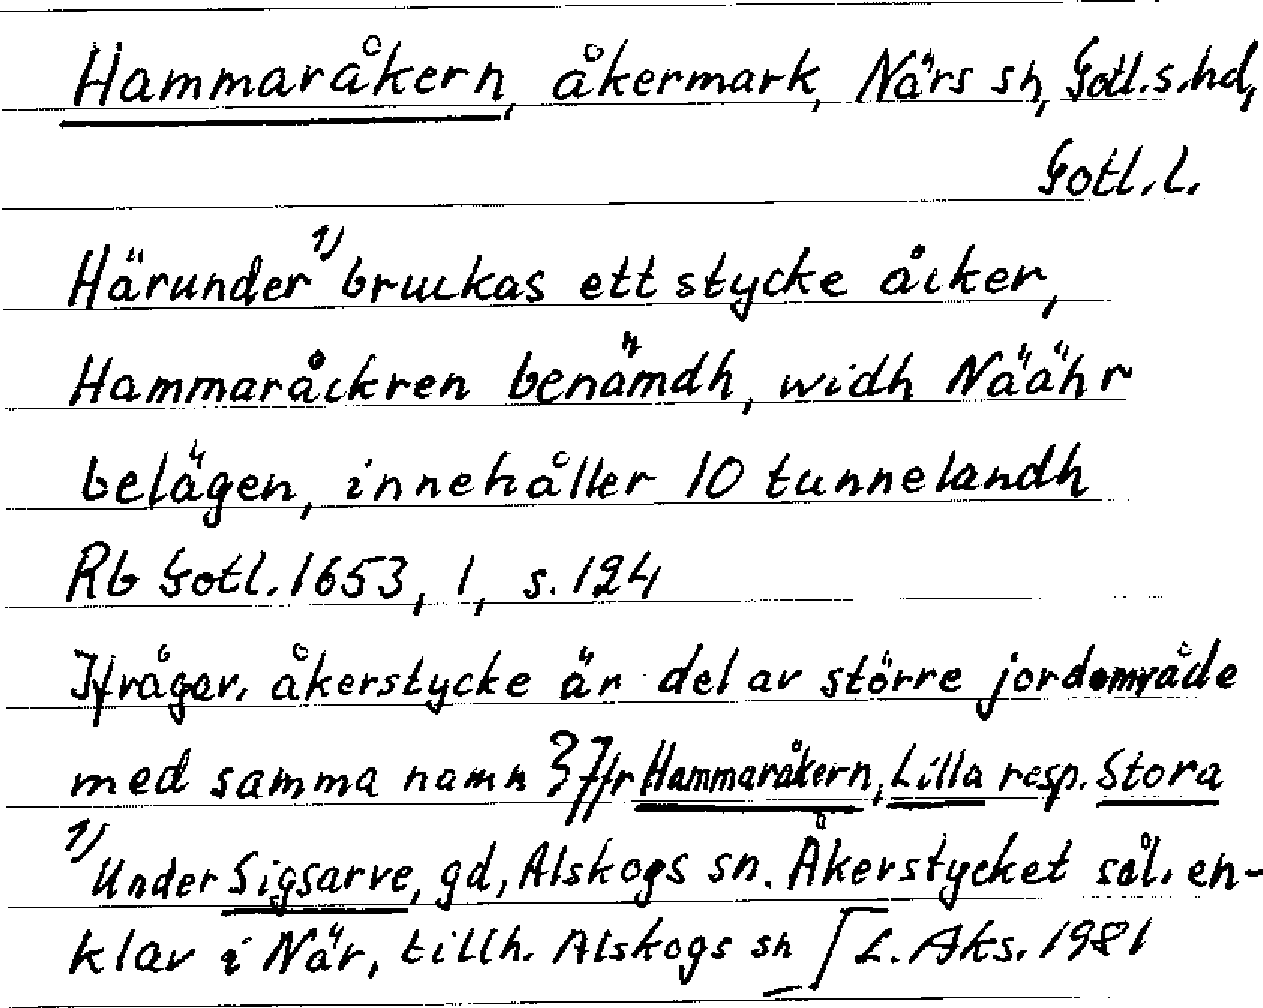 Hammaråkern, åkermark, Närs sn, Gotl.s.hd,
Gotl.l.
Härunder 1) bruckas ett stycke åcker,
Hammaråckren benämdh, widh Näähr
belägen, innehåller 10 tunnelandh
Rb Gotl. 1653, 1, s. 124
Ifrågav. åkerstycke är del av större jordområde
med samma namn Jfr Hammaråkern, Lilla resp. Stora
1) Under Sigsarve, gd, Alskogs sn. Åkerstycket sål. en-
klav i När, tillh. Alskogs sn L. Aks. 1981